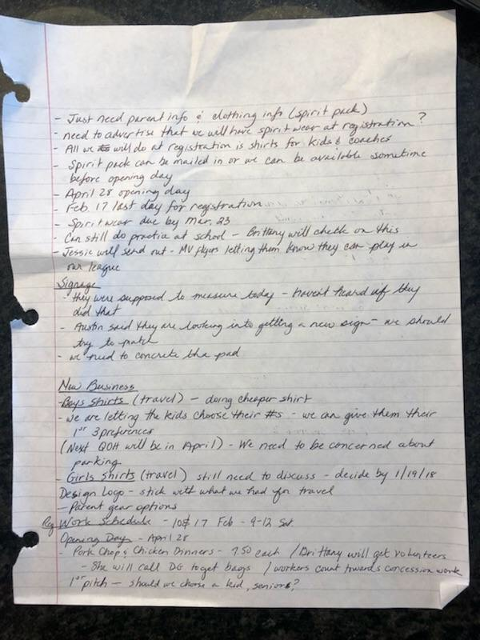 - Just need parent info & clothing info (spirit pack)
- need to advertise that we will have spirit wear at registration?
- All we will do at registration is shirts for kids & coaches
- Spirit pack can be mailed in or we can be available sometime
before opening day
- April 28 opening day
- Feb. 17 last day for registration
- Spirit wear due by Mar. 23
- Can still do practice at school - Brittany will check on this
- Jessie will send out - MV flyers letting them know they can play in
our league
Signage
- they were supposed to measure today - havent heard if they
did that
- Austin said they are looking into getting a new sign - we should
try to match
- we need to concrete the pad
New Business
- Boys Shirts (travel) - doing cheaper shirt
- we are letting the kids choose their #s - we can give them their
1st 3 preferences
(Next QOH will be in April) - We need to be concerned about
parking.
- Girls Shirts (travel) still need to discuss - decide by 1/19/18
Design Logo - stick with what we had for travel
- Parent gear options
Reg Work Schedule - 10 & 17 Feb - 9-12 Sat.
Opening Day - April 28
- Pork Chop & Chicken Dinners - 7.50 each / Brittany will get volunteers
- She will call DG to get bags / workers count towards concession work
1st pitch - should we choose a kid, seniors?